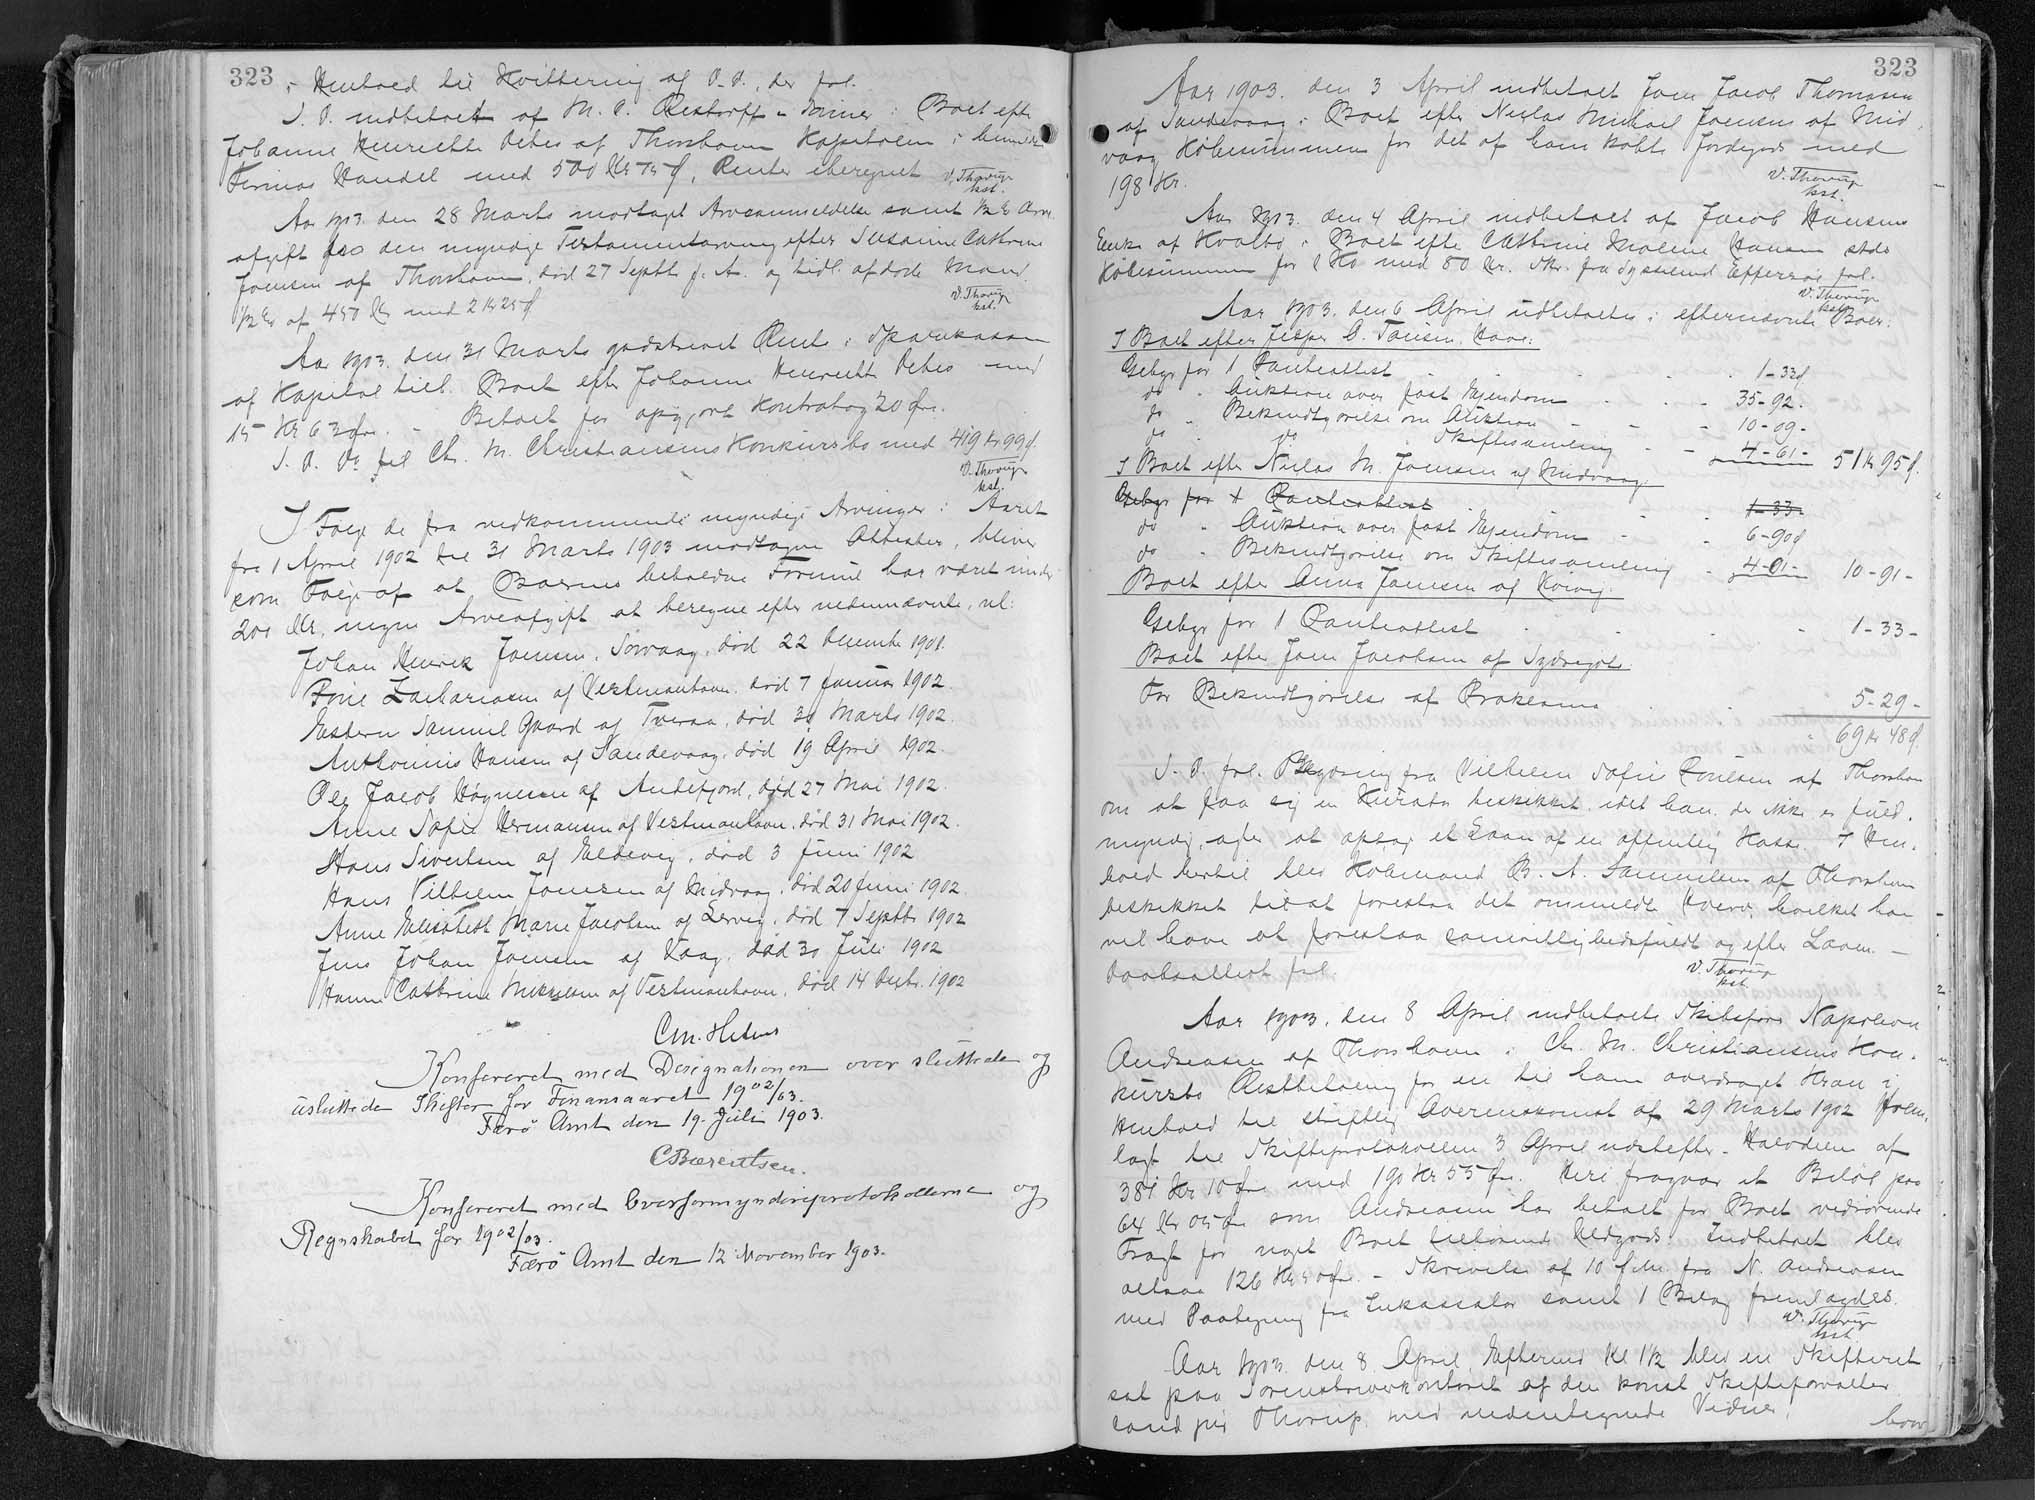 323
i Henhold til Kvittering af D. D., der frl.
S. D. indbetalt af M. C. Restorff & Sønner i Boet efter
Johanne Henriette Debes af Thorshavn Kapitalen i hendes
Firmas Handel med 500 Kr 75 Ø, Renter iberegnet
V. Thorup
kst.
Aar 1903 den 28 Marts modtaget Arveanmeldelse samt ½ % Arve
afgift fra den myndige Testamentsarving efter Susanne Cathrine
Joensen af Thorshavn, død 27 Septbr f. A. og tidl. afdøde Mand
½ % af 450 Kr med 2 Kr 25 Ø
V. Thorup
kst.
Aar 1903 den 31 Marts godskrevet Rente i Sparekassen
af Kapital till. Boet efter Johanne Henriette Debes med
15 Kr 63 Øre. - Betalt for opgjort Kontrabog 20 Øre.
S. D. Do till Chr. M. Christiansens Konkursbo med 419 Kr 99 Ø.
V. Thorup
kst.
I Følge de fra vedkommende myndige Arvinger i Aaret
fra 1 April 1902 til 31 Marts 1903 modtagne Attester, bliver
som Følge af at Boernes beholdne Formue har været under
200 Kr, ingen Arveafgift at beregne efter nedennævnte, nl:
Johan Henrik Joensen, Sørvaag, død 22 Decembr 1901.
Zachariasen af Vestmanhavn, død 7 Januar 1902.
Esbern Samuel Gaard af Tveraa, død 30 Marts 1902.
Anthonius Hansen af Sandevaag, død 19 April 1902.
Ole Jacob Høgnesen af Andefjord, død 27 Mai 1902.
Anne Sofie Hermansen af Vestmanhavn, død 31 Mai 1902.
Hans Sivertsen af Eldevig, død 3 Juni 1902
Hans Vilhelm Joensen af Midvaag, død 20 Juni 1902.
Anne Elisabeth Marie Jacobsen af Lervig, død 7 Septbr 1902
Jens Johan Joensen af Vaag, død 30 Juli 1902
Hanne Cathrine Mikkelsen af Vestmanhavn, død 14 Decbr. 1902
Konfereret med Designationen over sluttede og
usluttede Skifter for Finansaaret 1902/03.
Færø Amt den 19. Juli 1903.
CBærentsen.
Konfereret med Overformynderiprotokollerne og
Regnskabet for 1902/03.
Færö Amt den 12 November 1903.
323
Aar 1903. den 3 April indbetalt Joen Jacob Thomasen
af Sandevaag i Boet efter Niclas Michael Joensen af Mid
vaag Købesummen for det af ham købte Jordegods med
198 Kr.
V. Thorup
kst.
Aar 1903. den 4 April indbetalt af Jacob Hansens
Enke af Hvalbø i Boet efter Cathrine Malene Hansen
Købesummen for 1 Ko med 80 Kr. Skr. fra Sysselmd Effersøe frl.
V. Thorup
kst.
Aar 1903. den 6 April udbetaltes i efternævnte Boer:
I Boet efter Jesper D. Tausen,
Gebyr for 1 Panteattest - 1-33 Ø
do - Auktion over fast Ejendom - 35-92-
do - Bekendtgørelse om Auktion - 10-09-
do - do - Skiftesamling - 4-61- 51 Kr 95 Ø.
I Boet efter Niclas M. Joensen af Midvaag
Gebyr for 1 Panteattest 1-33-
do - Auktion over fast Ejendom - 6-90 Ø
do - Bekendtgørelse om Skiftesamling - 4-01- 10-91-
Boet efter Anna Joensen af Kvivig:
Gebyr for 1 Panteattest - 1-33-
Boet efter Joen Jacobsen af Sydregøte
For Bekendtgørelse af Proklama 5-29-
69 Kr 48 Ø.
S. D. frl. Begæring fra Vilhelm Sofus Poulsen af Thorshavn
om at faa sig en Kurator beskikket, idet han, der ikke er fuld-
myndig, agter at optage et Laan af en offentlig Kasse. I Hen-
hold hertil blev Købmand B. A. Samuelsen af Thorshavn
beskikket til at forestaa det ommeldte Hverv, hvilket han
vil have at forestaa samvittighedsfuldt og efter Loven. -
Daabsattest frl.
V. Thorup
kst.
Aar 1903. den 8 April indbetalte Skibsfører Napoleon
Andreasen af Thorshavn i Chr. M. Christiansens Kon-
kursbo Restbeløbet for en til ham overdraget Kran i
Henhold til skriftlig Overenskomst af 29 Marts 1902 frem-
lagt til Skifteprotokollen 3 April næstefter - Halvdelen af
381 Kr 10 Øre med 190 Kr 55 Øre. Heri fragaar et Beløb paa
64 Kr 05 Øre som Andreasen har betalt for Boet vedrørende
Fragt for noget Boet tilhørende Gods. Indbetalt blev
altsaa 126 Kr 50 Øre. - Skrivelse af 10 f. M. fra N. Andreasen
med Paategning fra Inkassator samt 1 Bilag fremlagdes.
V. Thorup
kst.
Aar 1903. den 8 April, Eftermd Kl 1½ blev en Skifteret
sat paa Sorenskriverkontoret af den konst Skifteforvalter
cand jur Thorup, med undertegnede Vidner,
hvor